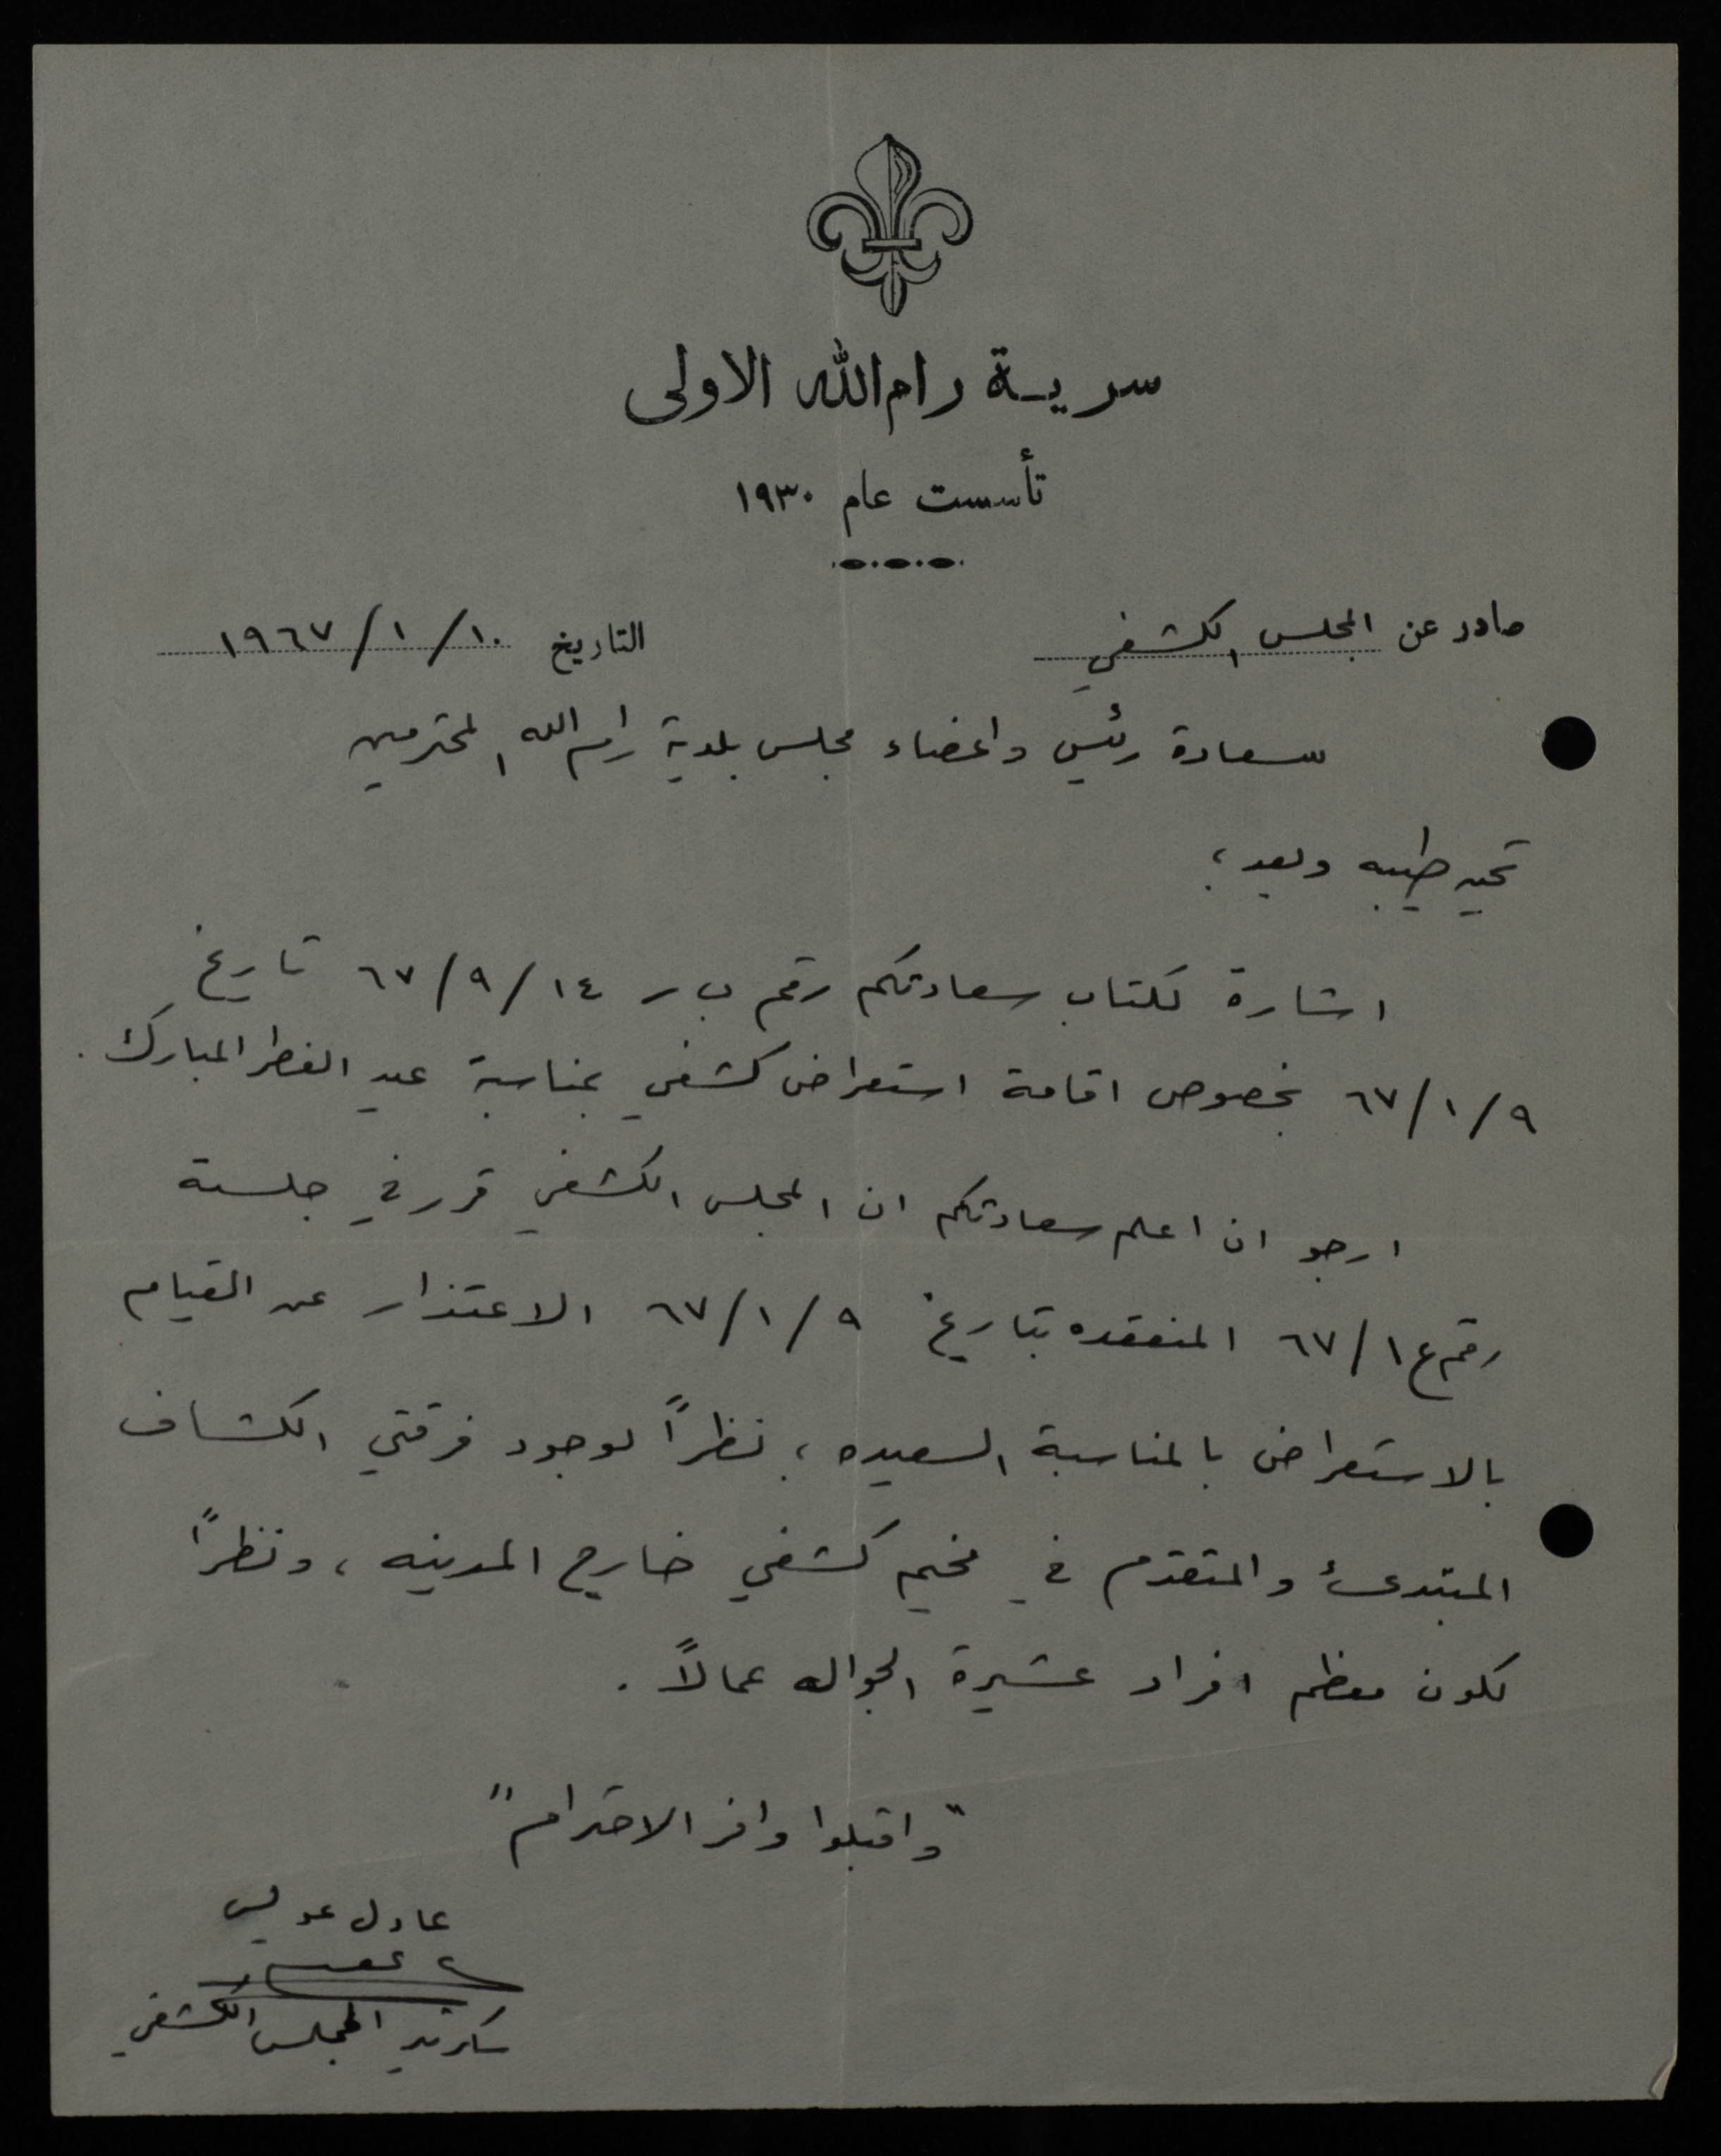 سرية رام الله الاولى
تأسست عام ١٩٣٠
صادر عن المجلس الكشفي التاريخ ١٠/١/١٩٦٧
سعادة رئيس واعضاء مجلس بلدية رام الله المحترمين
تحيه طيبه وبعد ؛
اشارة لكتاب سعادتكم رقم ب ر ١٤/٩/٦٧ تاريخ
٩/١/٦٧ بخصوص اقامة استعراض كشفي بمناسبة عيد الفطر المبارك .
ارجو ان اعلم سعادتكم ان المجلس الكشفي قرر في جلسة
رقم ع ١/٦٧ المنعقده بتاريخ ٩/١/٦٧ الاعتذار عن القيام
بالاستعراض بالمناسبة السعيده ، نظراً لوجود فرقتي الكشاف
المبتدئ والمتقدم في مخيم كشفي خارج المدينه ، ونظراً
لكون معظم افراد عشيرة الجواله عمالاً .
"واقبلوا وافر الاحترام"
عادل عويس
سكرتير المجلس الكشفي